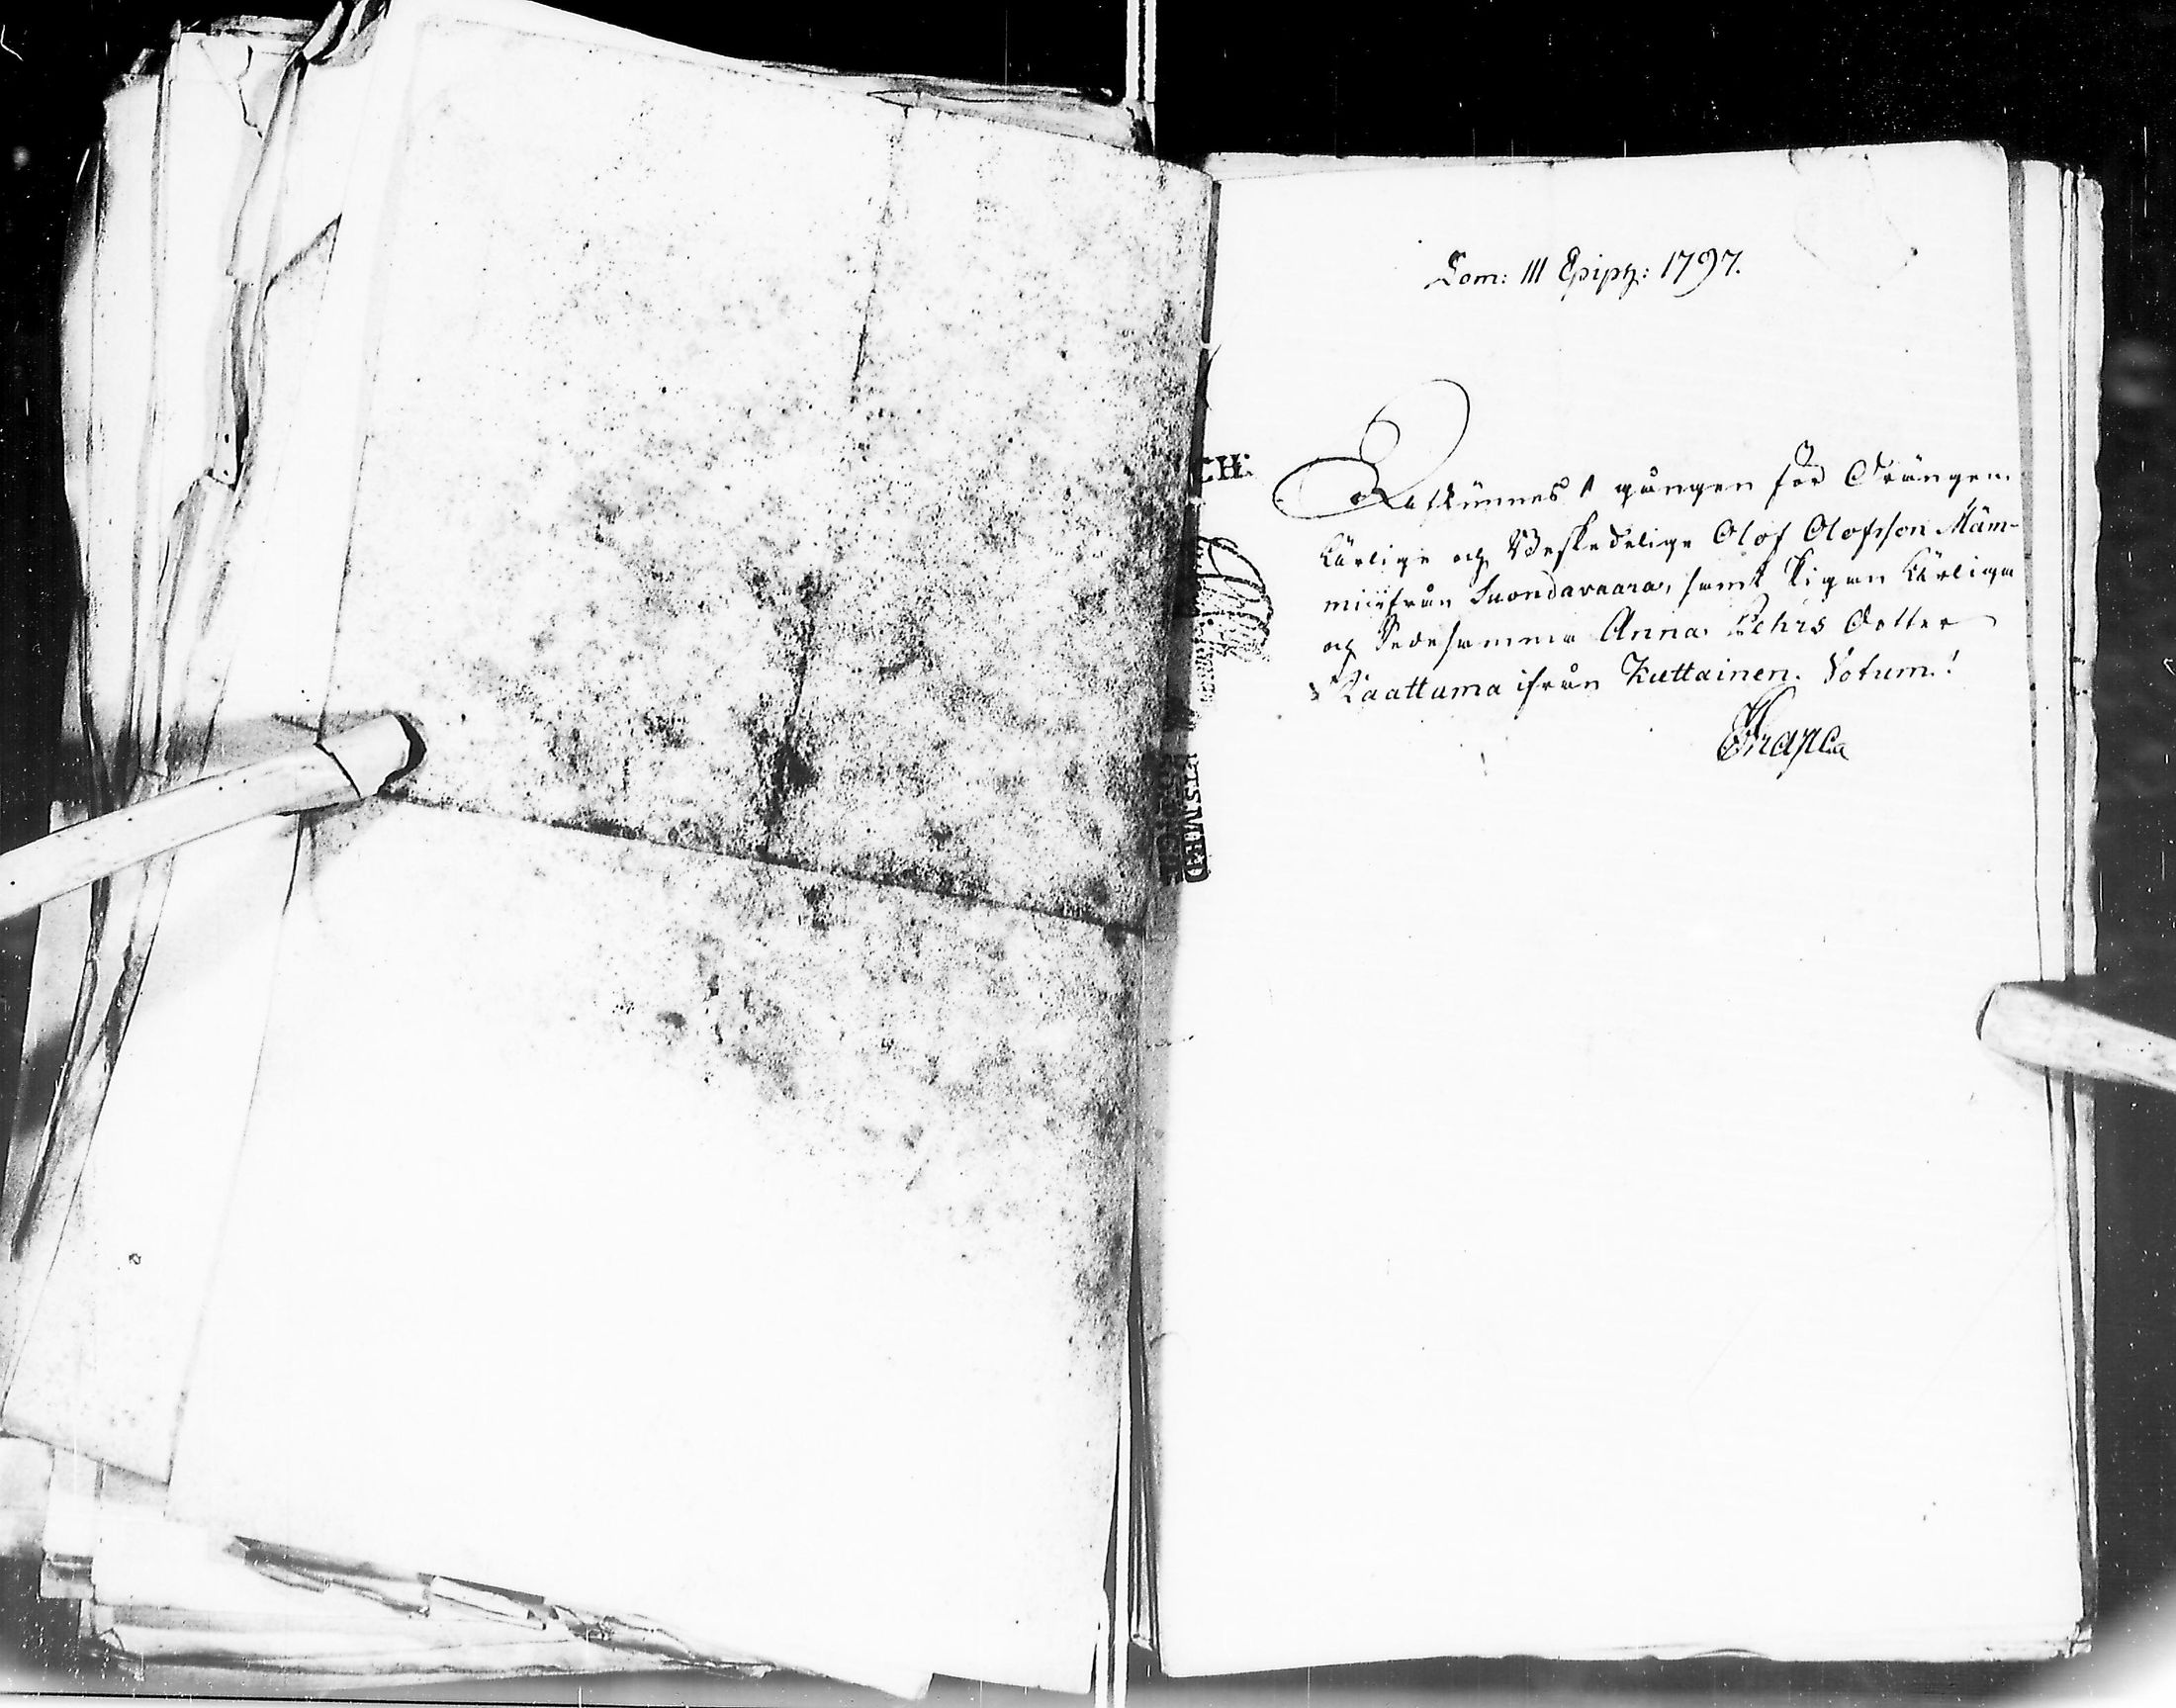 Dom: III Epiph: 1797.
Afkünnes 1 gången för Drängen
Ärlige och Beskedelige Olof Olofsson Mäm-
mi ifrån Suondavaara, samt Pigan Ärliga
och Sedesamma Anna Pehrs Dotter
Kaattama ifrån Kuttainen. Votum!
CH: